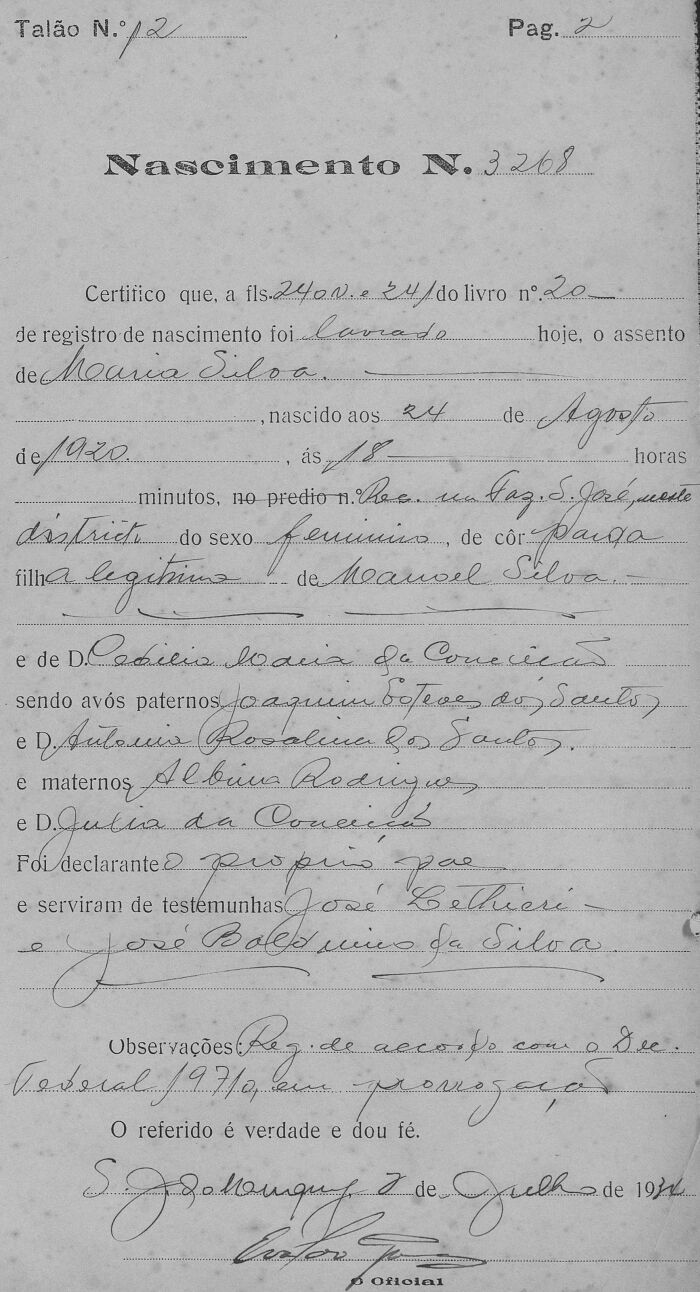 Talão N.º 12 Pag. 2
Nascimento N. 3268
Certifico que, a fls. 240v. e 241 do livro nº. 20
de registro de nascimento foi lavrado hoje, o assento
de Maria Silva.
, nascido aos 24 de Agosto
de 1920. , ás 18 horas
minutos, no predio n.º Rec. na Faz. S. José, neste
districto do sexo feminino, de côr parda
filha legitima de Manoel Silva.
e de D. Cecilia Maria da Conceição
sendo avós paternos Joaquim Esteves dos Santos
e D. Antonia Rosalina dos Santos.
e maternos Albino Rodrigues
e D. Julia da Conceição
Foi declarante o proprio pae
e serviram de testemunhas José Lethieri
e José Balduino da Silva
Observações: Reg. de accordo com o Dec.
Federal 19710, em prorrogação
O referido é verdade e dou fé.
S. J. do 2 de Julho de 1934
O Oficial